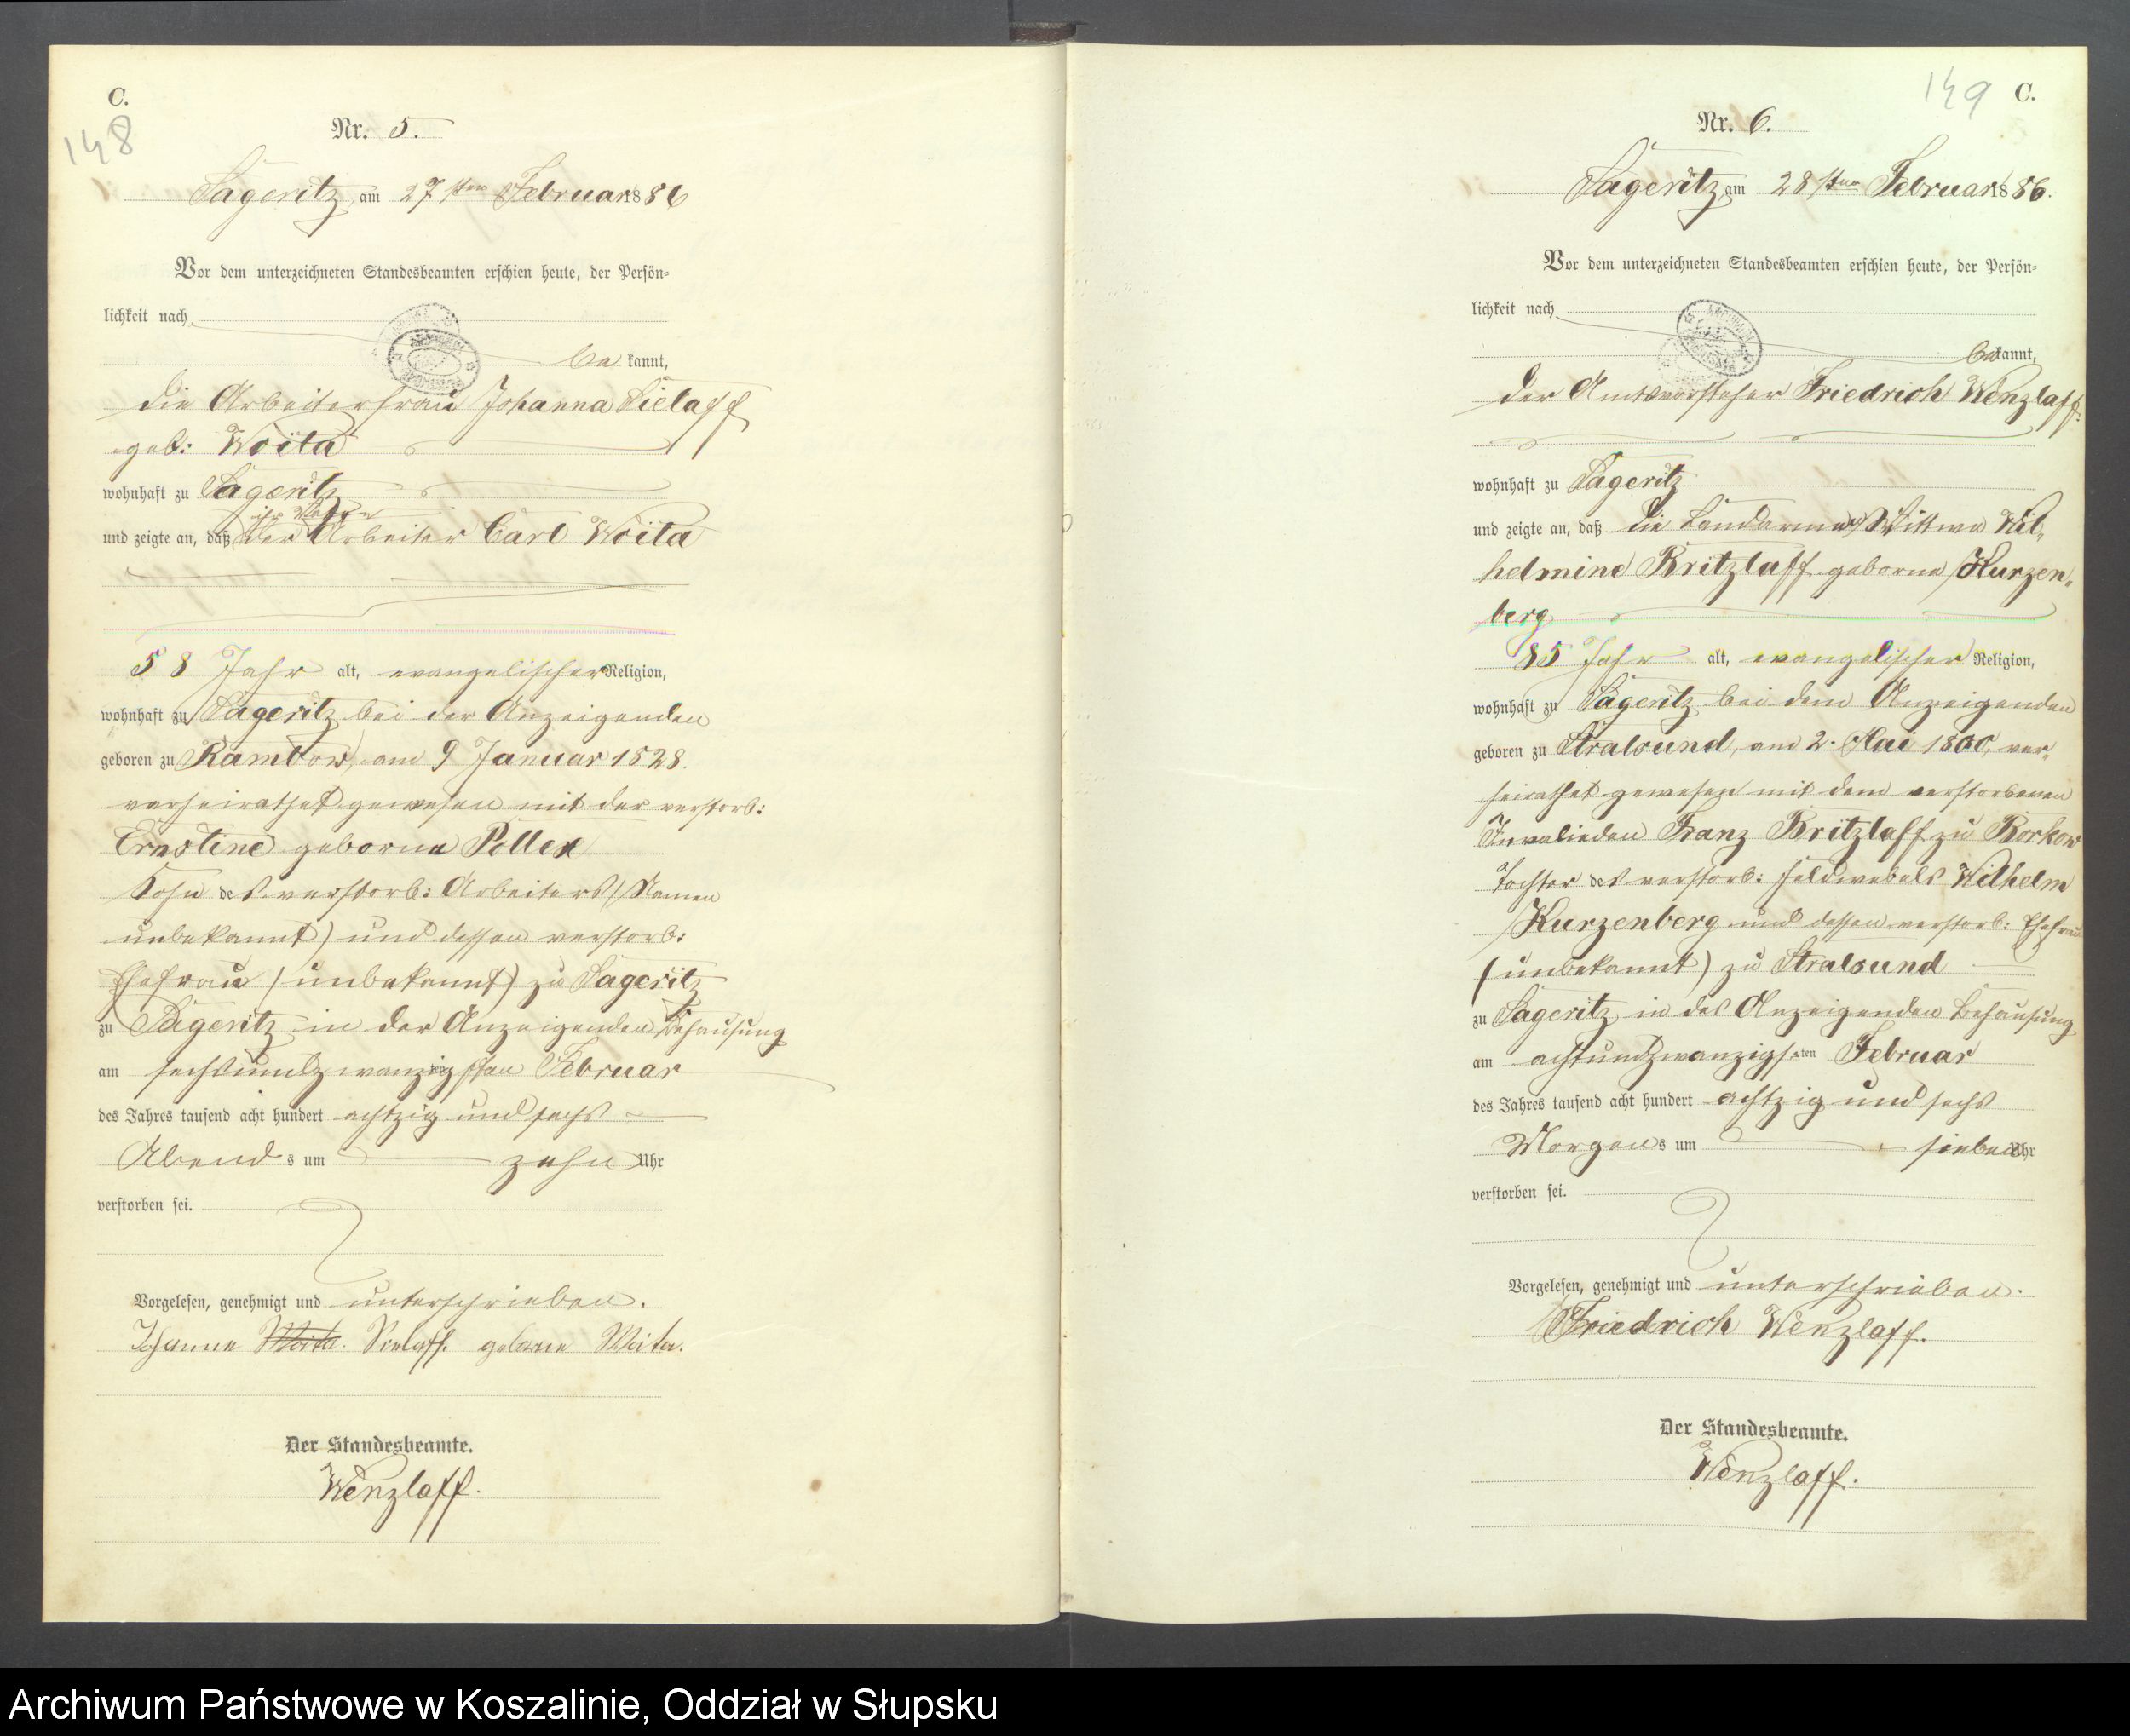 C.
148
Nr. 5.
Sageritz, am 27 sten Februar 1886
Vor dem unterzeichneten Standesbeamten erschien heute, der Persön-
lichkeit nach
be kannt,
die Arbeiterfrau Johanna Sielaff
geb: Woita
wohnhaft zu Sageritz
ihr Vater
und zeigte an, daß der Arbeiter Carl Woita
58 Jahr alt, evangelischer Religion,
wohnhaft zu Sageritz bei der Anzeigenden
geboren zu Rambow, am 9 Januar 1828.
verheirathet gewesen mit der verstorb:
Ernstine geborne Pollex
Sohn des verstorb: Arbeiters (Namen
unbekannt) und dessen verstorb:
Ehefrau (unbekannt) zu Sageritz
zu Sageritz in der Anzeigenden Behausung
am sechsundzwanzigsten Februar
des Jahres tausend acht hundert achtzig und sechs
Abend s um zehn Uhr
verstorben sei.
Vorgelesen, genehmigt und unterschrieben.
Johanne Woita. Sielaff. geborne Woita.
Der Standesbeamte.
Wenzlaff.
149 C.
Nr. 6.
Sageritz am 28 sten Februar 1886.
Vor dem unterzeichneten Standesbeamten erschien heute, der Persön-
lichkeit nach
be kannt,
der Amtsvorsteher Friedrich Wenzlaff.
wohnhaft zu Sageritz
und zeigte an, daß die Landarme Wittwe Wil-
helmine Britzlaff geborne Kurzen-
berg
85 Jahr alt, evangelischer Religion,
wohnhaft zu Sageritz bei dem Anzeigenden
geboren zu Stralsund, am 2. Mai 1800, ver-
heirathet gewesen mit dem verstorbenen
Invalieden Franz Britzlaff zu Borkow
Tochter des verstorb: Feldwebels Wilhelm
Kurzenberg und dessen verstorb: Ehefrau
(unbekannt) zu Stralsund
zu Sageritz in des Anzeigenden Behausung
am achtundzwanzigsten Februar
des Jahres tausend acht hundert achtzig und sechs
Morgens um sieben Uhr
verstorben sei.
Vorgelesen, genehmigt und unterschrieben.
Friedrich Wenzlaff.
Der Standesbeamte.
Wenzlaff.
Archiwum Państwowe w Koszalinie, Oddział w Słupsku